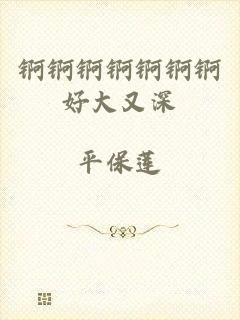 锕锕锕锕锕锕锕
好大又深
平保莲